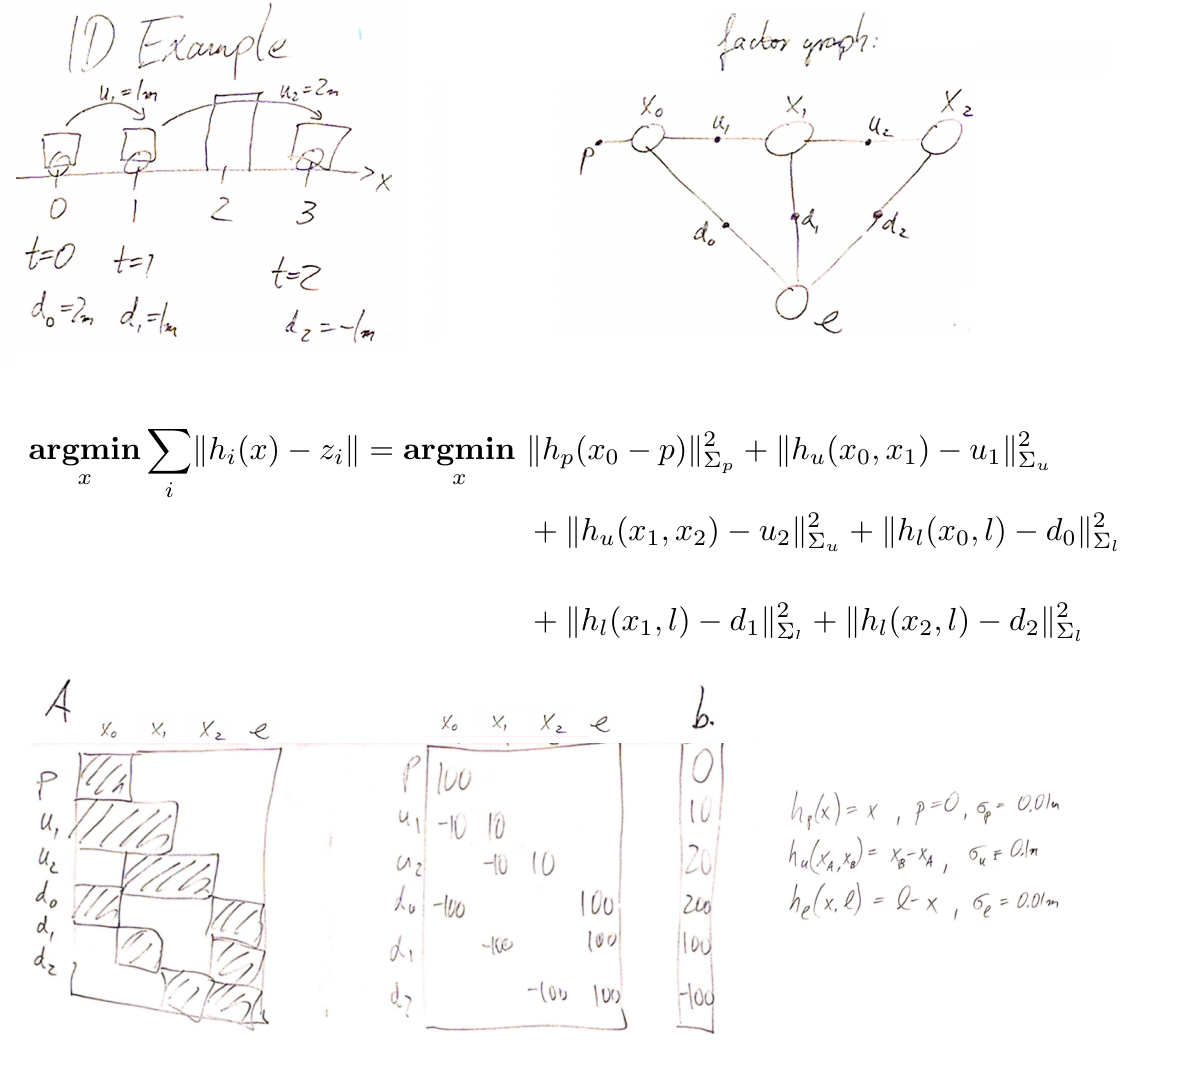 1D Example
u₁=1m u₂=2m
x
0 1 2 3
t=0 t=1 t=2
d₀=2m d₁=1m d₂=-1m
factor graph:
x₀ x₁ x₂
p u₁ u₂
d₀ d₁ d₂
l
argmin_x ∑_i ‖h_i(x) − z_i‖ = argmin_x ‖h_p(x₀ − p)‖²_{Σ_p} + ‖h_u(x₀, x₁) − u₁‖²_{Σ_u}
+ ‖h_u(x₁, x₂) − u₂‖²_{Σ_u} + ‖h_l(x₀, l) − d₀‖²_{Σ_l}
+ ‖h_l(x₁, l) − d₁‖²_{Σ_l} + ‖h_l(x₂, l) − d₂‖²_{Σ_l}
A
x₀ x₁ x₂ l
p
u₁
u₂
d₀
d₁
d₂
x₀ x₁ x₂ l b.
p 100 0
u₁ -10 10 10
u₂ -10 10 20
d₀ -100 100 200
d₁ -100 100 100
d₂ -100 100 -100
h_p(x) = x , p=0, σ_p = 0.01m
h_u(x_A,x_B) = x_B-x_A , σ_u = 0.1m
h_l(x,l) = l-x , σ_l = 0.01m